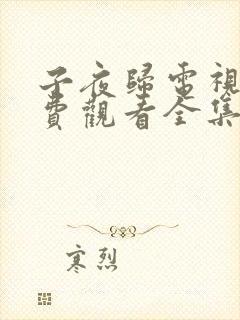 子夜歸電視
費觀看全集
寒烈